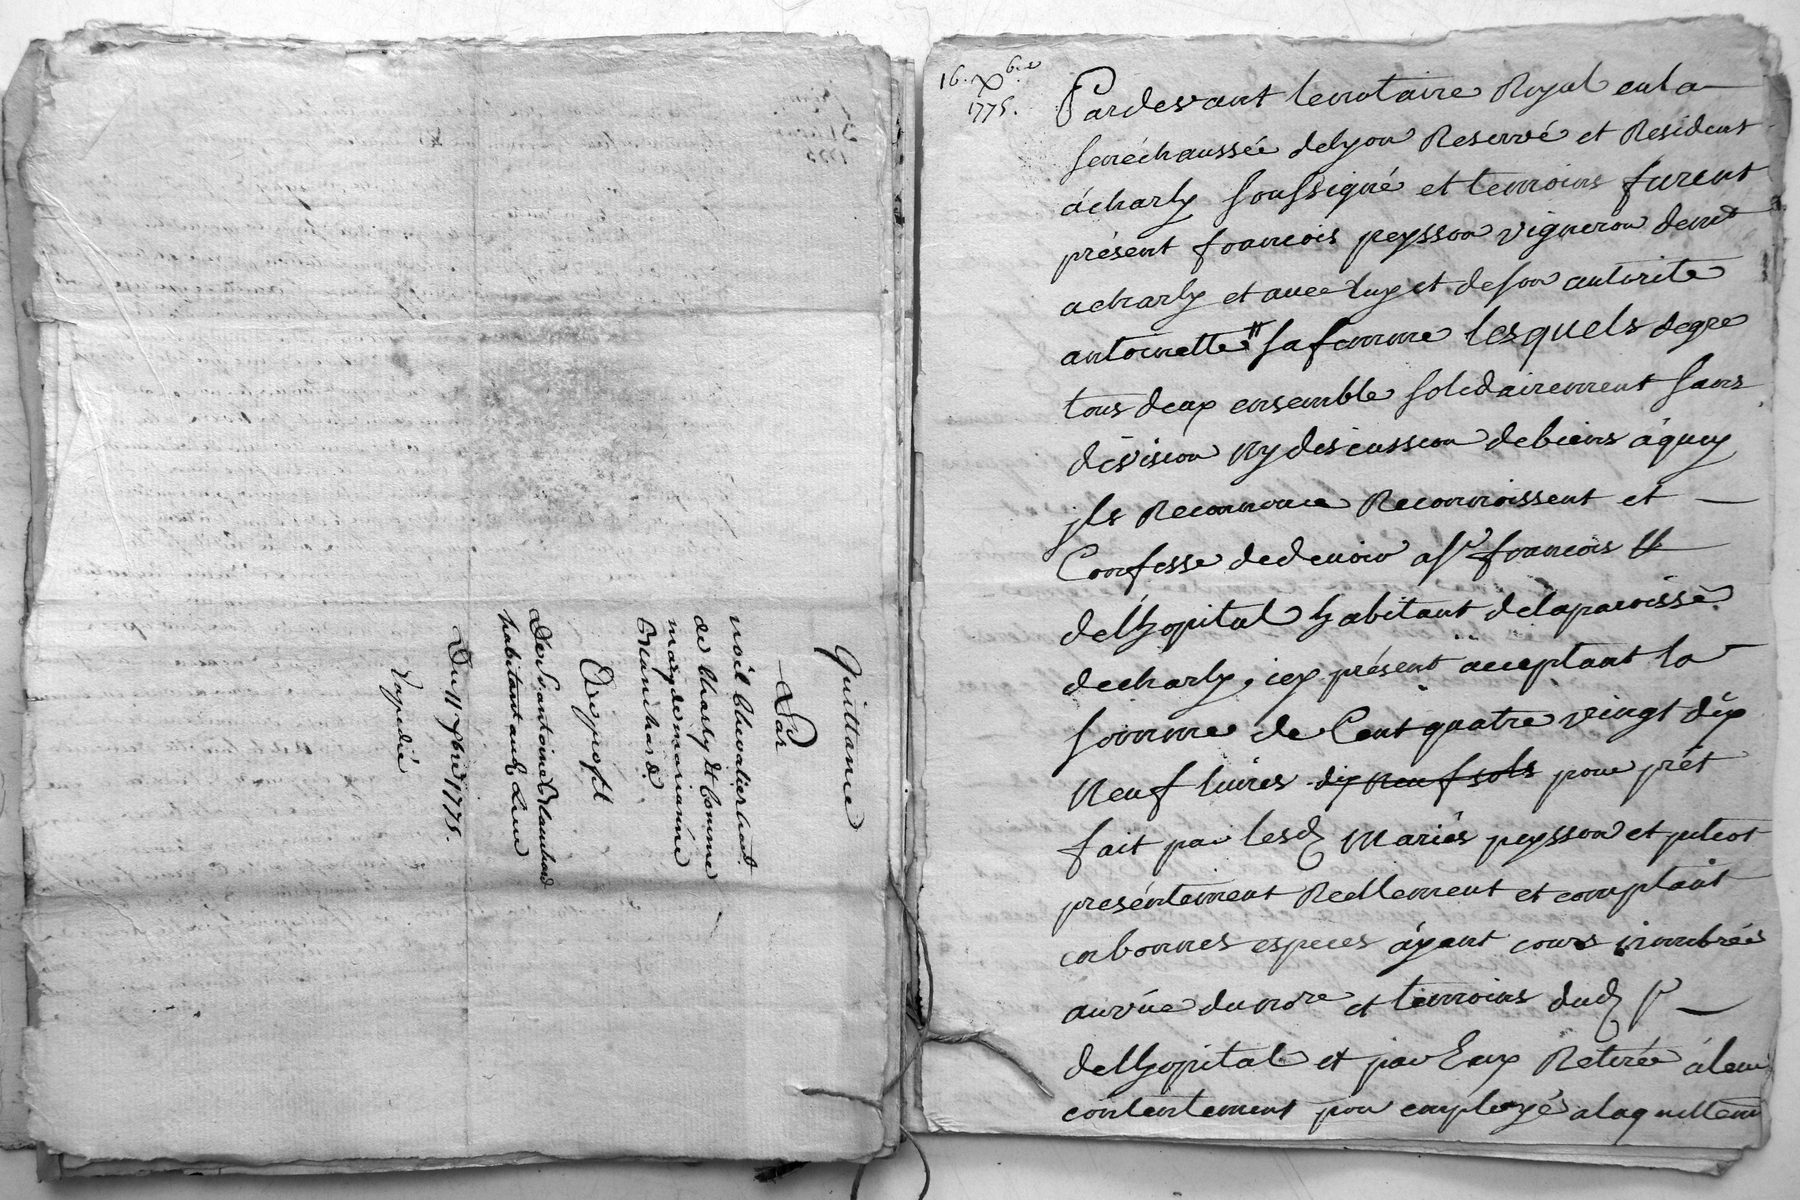 Quittance
Par
noël Chevalier hab.t
de Charly & Comme
mary de marianne
Blanchard.
Au profit
De S. antoine Blanchard
habitant aud. Lieu
Du 11 9bre 1775.
Expedié
16. Xbre
1775.
Pardevant le notaire Royal en la
senéchaussée de Lyon Reservé et Resident
à charly soussigné et temoins furent
présent francois peysson vigneron demt
a charly et avec luy et de son autorite
antoinette # sa femme lesquels de gre
tous deux ensemble solidairement sans
division ny discussion de biens à quoy
jls Reconnonce Reconnoissent et
Confesse de devoir a sr francois #
de lhopital habitant de la paroisse
de charly, icy présent acceptant la
somme de Cent quatre vingt dix
Neuf livres dix neuf sols pour prêt
fait par lesd mariés peysson et
presentement Reellement et comptant
en bonnes especes áyant cours nombrées
au vüe du nore et temoins dud sr
de lhopital et par Eux Retirée à leur
contentement pour employé a laquelle